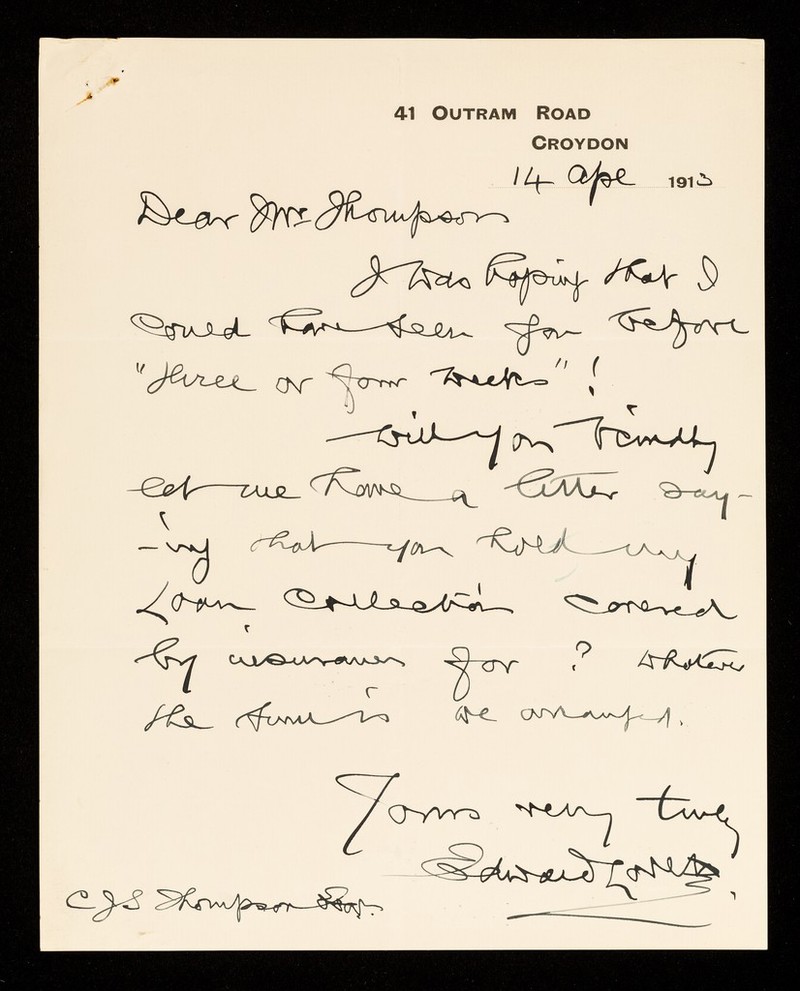 41 OUTRAM ROAD
CROYDON
14 Apl 1913
Dear Mr Thompson
I was hoping that I
could have seen you before
"three or four weeks"!
Will you kindly
let me have a letter say-
-ing that you hold my
Loan Collection covered
by insurance for ? whatever
the sum is we arranged.
Yours very truly
Edward Lovett.
C J S Thompson Esq.